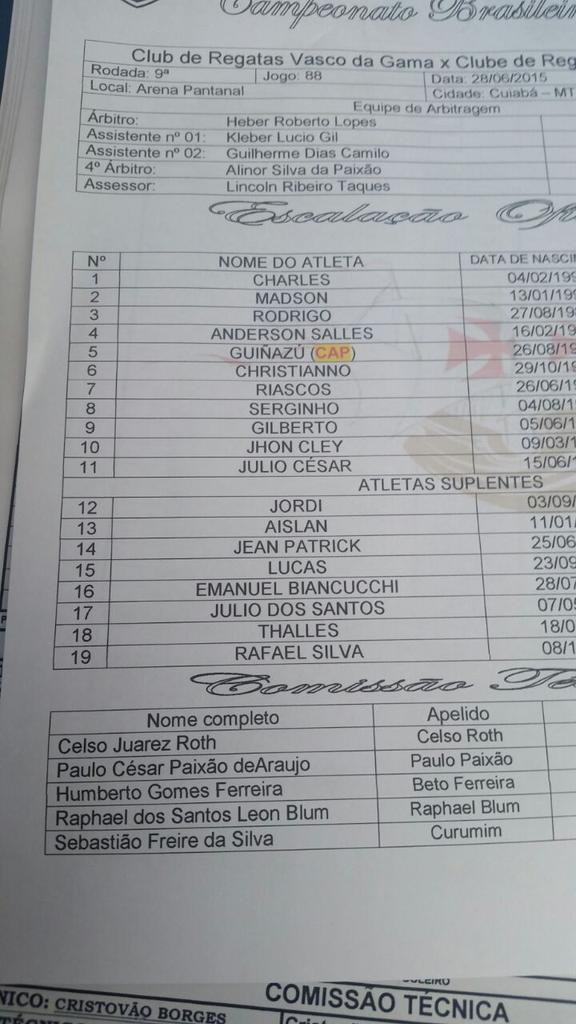 Campeonato Brasilei
Club de Regatas Vasco da Gama x Clube de Reg
Rodada: 9ª Jogo: 88 Data: 28/06/2015
Local: Arena Pantanal Cidade: Cuiabá – MT
Equipe de Arbitragem
Árbitro: Heber Roberto Lopes
Assistente nº 01: Kleber Lucio Gil
Assistente nº 02: Guilherme Dias Camilo
4º Árbitro: Alinor Silva da Paixão
Assessor: Lincoln Ribeiro Taques
Escalação Ofi
Nº NOME DO ATLETA DATA DE NASCI
1 CHARLES 04/02/199
2 MADSON 13/01/199
3 RODRIGO 27/08/19
4 ANDERSON SALLES 16/02/19
5 GUIÑAZÚ (CAP) 26/08/19
6 CHRISTIANNO 29/10/19
7 RIASCOS 26/06/19
8 SERGINHO 04/08/1
9 GILBERTO 05/06/1
10 JHON CLEY 09/03/1
11 JULIO CÉSAR 15/06/1
ATLETAS SUPLENTES
12 JORDI 03/09/
13 AISLAN 11/01/
14 JEAN PATRICK 25/06
15 LUCAS 23/09
16 EMANUEL BIANCUCCHI 28/07
17 JULIO DOS SANTOS 07/05
18 THALLES 18/0
19 RAFAEL SILVA 08/1
Comissão Té
Nome completo Apelido
Celso Juarez Roth Celso Roth
Paulo César Paixão deAraujo Paulo Paixão
Humberto Gomes Ferreira Beto Ferreira
Raphael dos Santos Leon Blum Raphael Blum
Sebastião Freire da Silva Curumim
COMISSÃO TÉCNICA
NICO: CRISTOVÃO BORGES